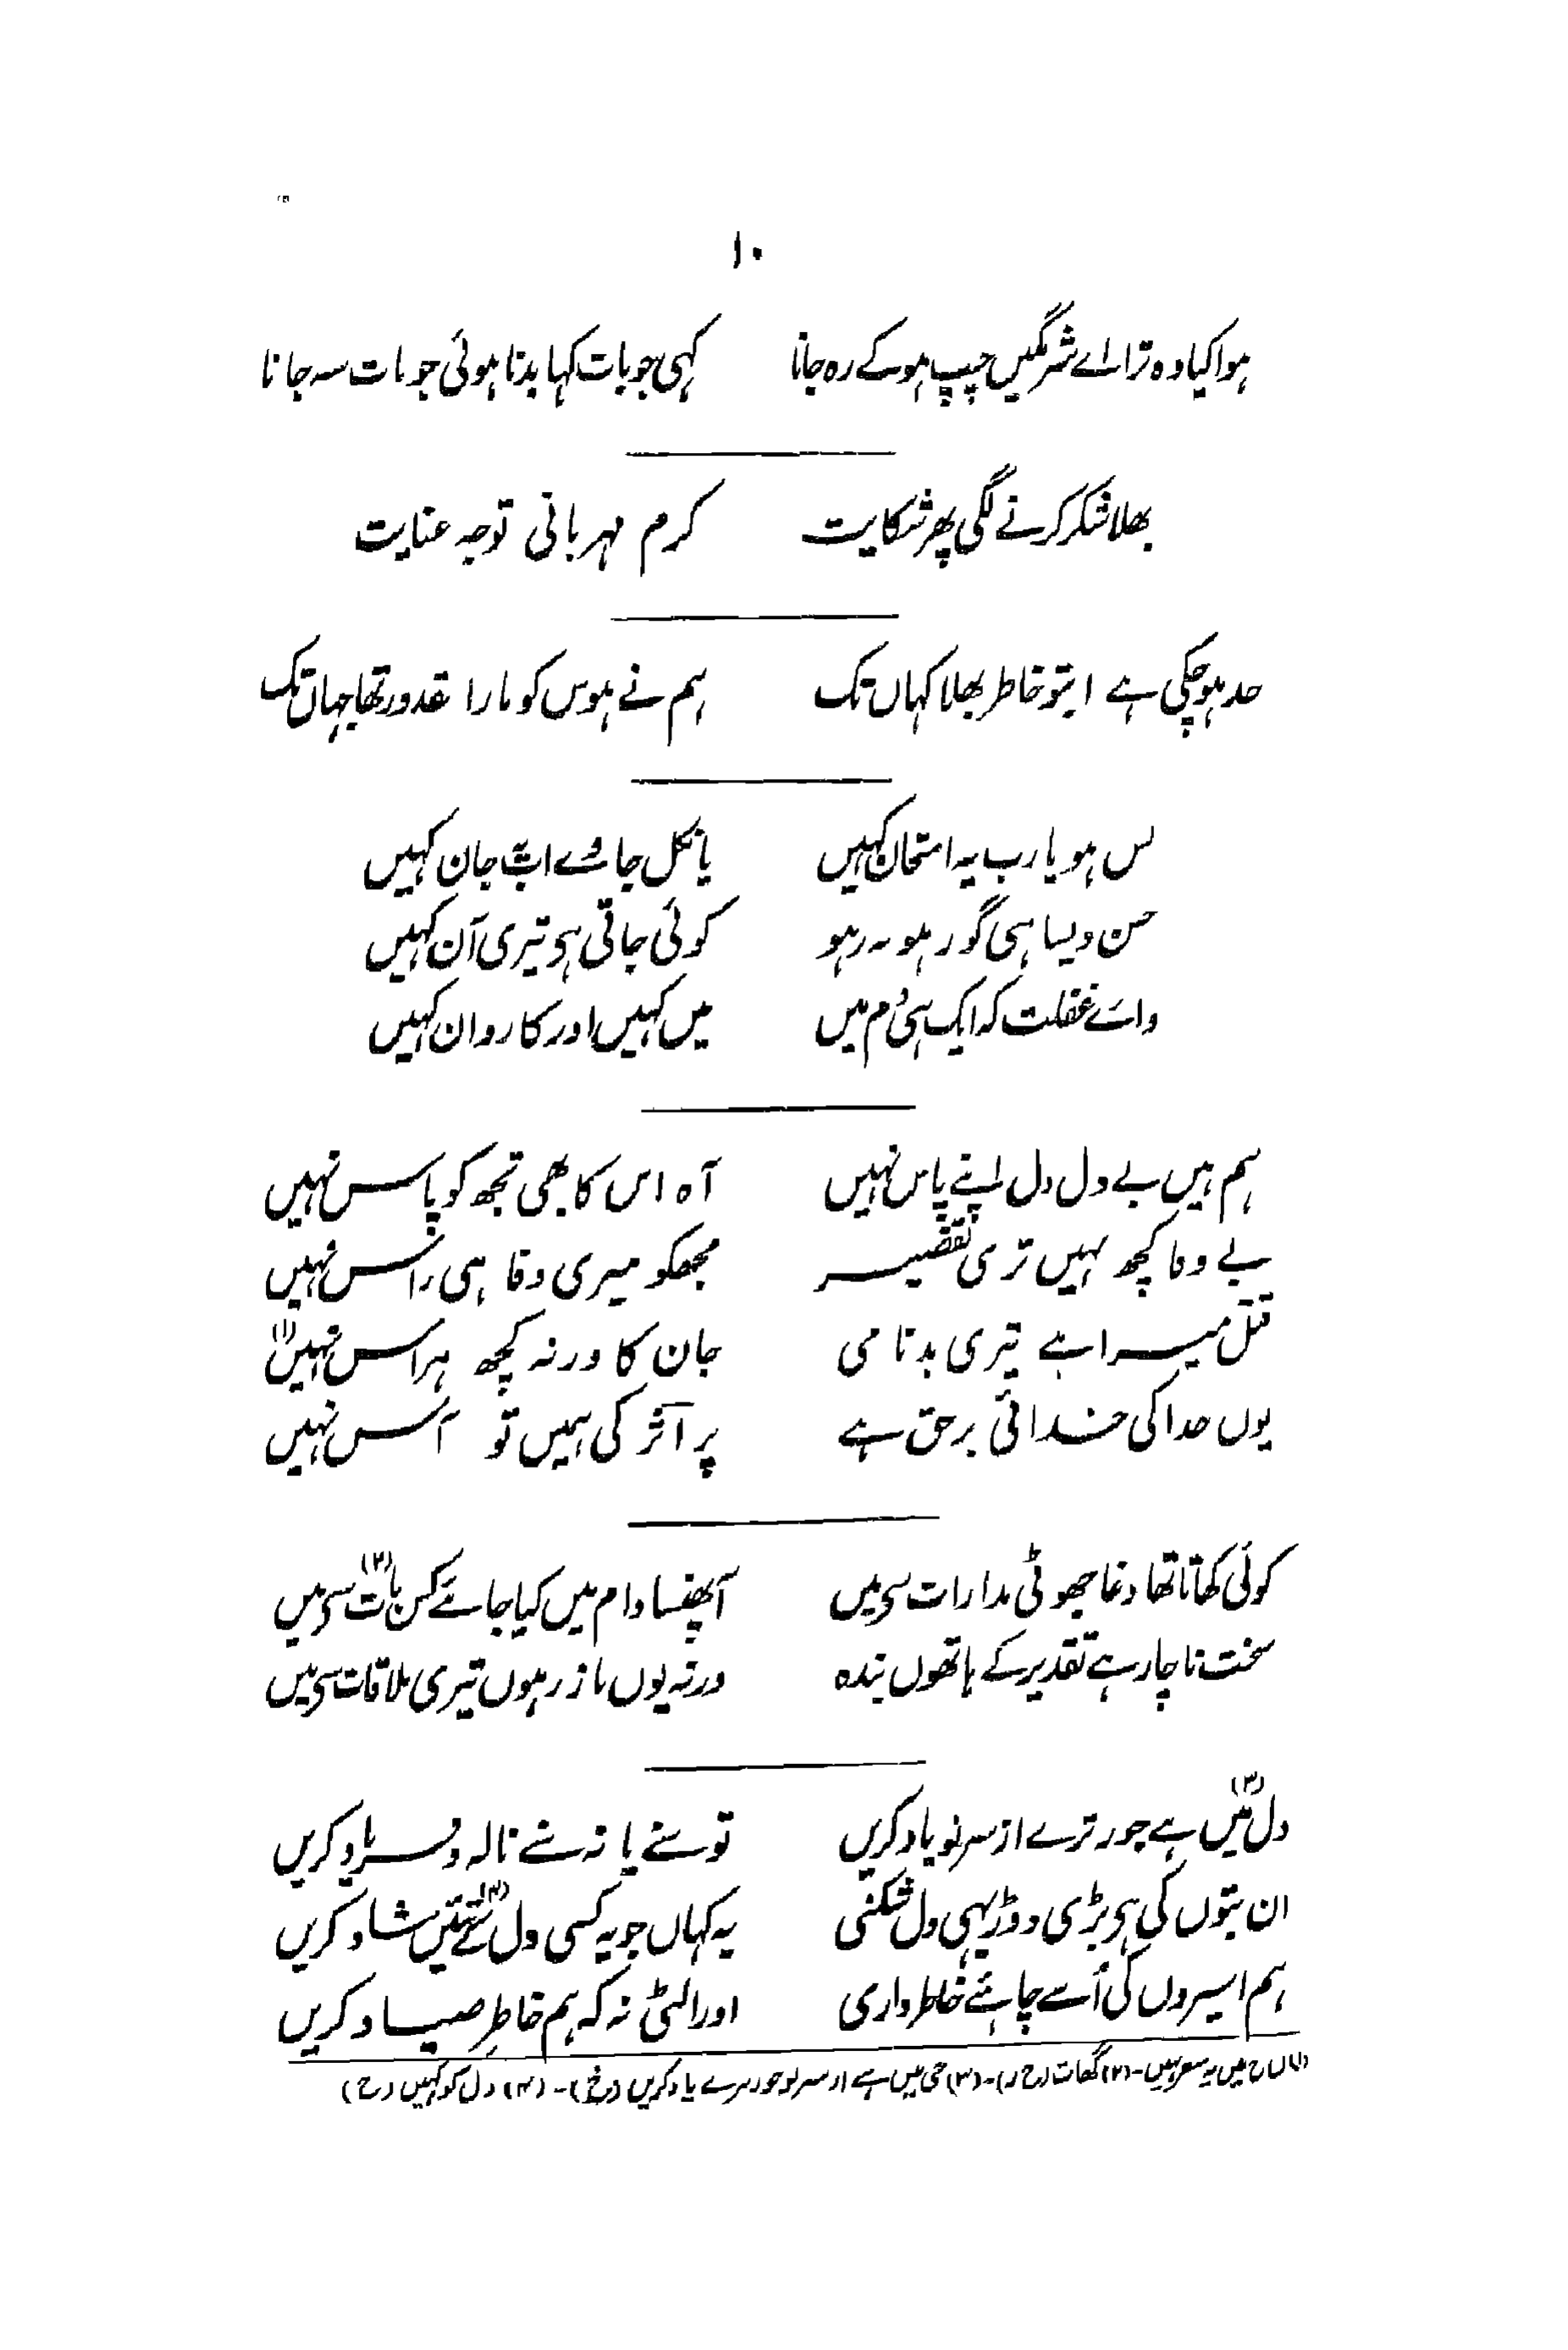 ۱۰
ہوا کیا وہ ترا اے شرمگیں چپ ہو کے رہ جانا کہی جو بات کہا بدنا ہوئی جو بات سہ جانا
بھلا شکر کرنے لگی پھر شکایت کرم مہربانی توجہ عنایت
حد ہو چکی ہے اتیو خاطر بھلا کہاں تک ہم نے ہوس کو مارا مقدور تھا جہاں تک
بس ہو یارب یہ امتحان کہیں یا نکل جائے اب یہ جان کہیں
حسن ویسا ہی گو رہو نہ رہو کوئی جاتی ہی تیری آن کہیں
وائے غفلت کہ ایک ہی دم میں میں کہیں اور کاروان کہیں
ہم ہیں بے دل دل اپنے پاس نہیں آہ اس کا بھی تجھ کو پاس نہیں
بے وفا کچھ نہیں تری تقصیر مجھکو میری وفا ہی راس نہیں
قتل میرا ہے تیری بدنامی جان کا ورنہ کچھ ہراس نہیں (۱)
یوں خدا کی خدائی برحق ہے پر اثر کی ہمیں تو آس نہیں
کوئی کھاتا تھا دغا جھوٹی مدارات سی میں آ پھنسا دام میں کیا جانئے کس بات (۲) سی میں
سخت ناچار ہے تقدیر کے ہاتھوں بندہ ورنہ یوں باز رہوں تیری ملاقات سی میں
دل میں (۳) ہے جور ترے از سر نو یاد کریں تو سنے یا نہ سنے نالہ و فریاد کریں
ان بتوں کی ہی بڑی دوڑ یہی دل شکنی یہ کہاں جو یہ کسی دل کے تئیں (۴) شاد کریں
ہم اسیروں کی اُسے چاہئے خاطر داری اور الٹی نہ کہ ہم خاطرِ صیاد کریں
(۱) ں ح میں یہ شعر نہیں - (۲) گھات (ح ر) - (۳) جی میں ہے از سر نو جور ترے یاد کریں - (۴) دل کو کہیں (ح)